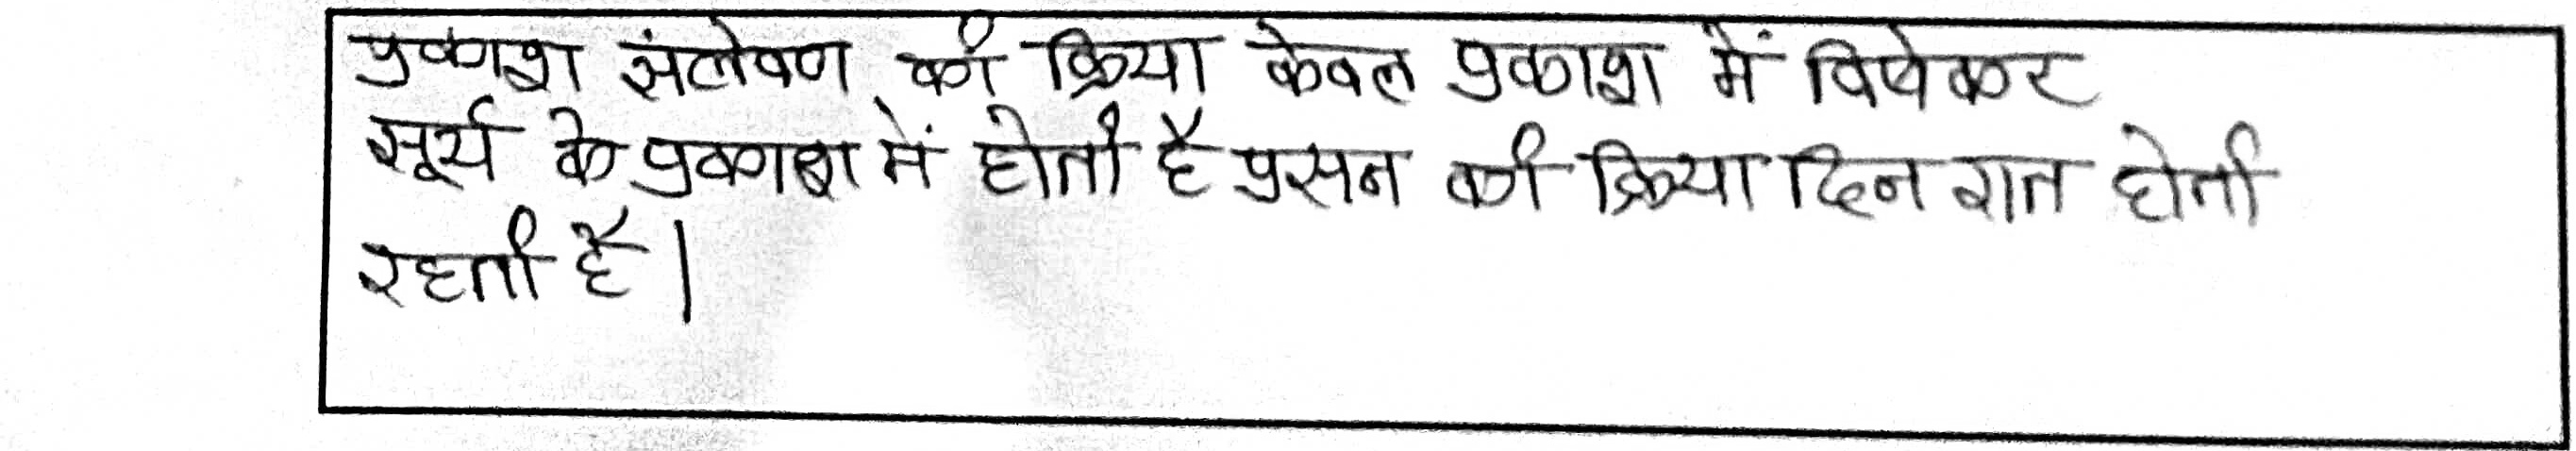 प्रकाश संलेषण की क्रिया केवल प्रकाश में विषेकर
सूर्य के प्रकाश में होती है प्रसन की क्रिया दिन रात होती
रहती है |